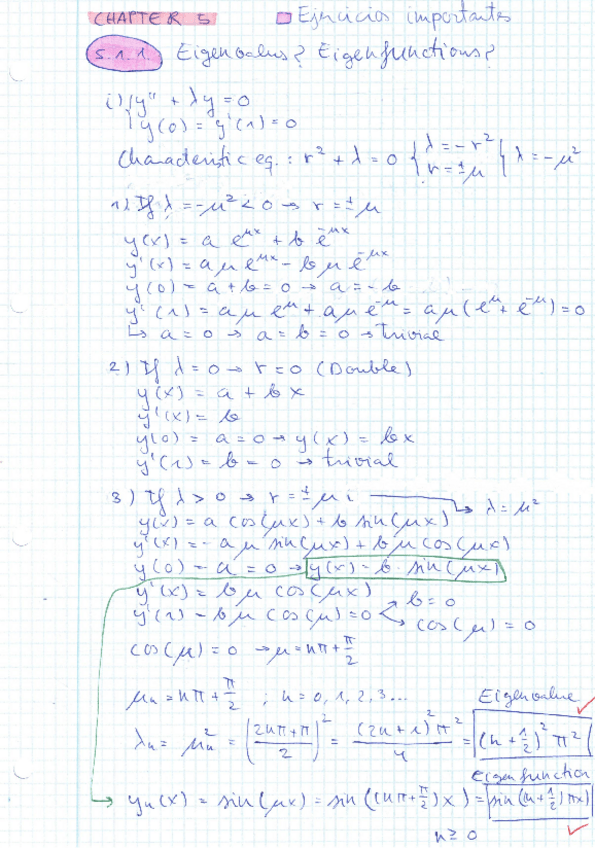 CHAPTER 5 Ejercicios importantes
5.1.1. Eigenvalues? Eigenfunctions?
i) { y'' + λy = 0
y(0) = y'(1) = 0
Characteristic eq.: r² + λ = 0 { λ = -r² } λ = -μ²
r = ±μ
1) If λ = -μ² < 0 → r = ±μ
y(x) = a e^{μx} + b e^{-μx}
y'(x) = a μ e^{μx} - b μ e^{-μx}
y(0) = a + b = 0 → a = -b
y'(1) = a μ e^{μ} + a μ e^{-μ} = a μ (e^{μ} + e^{-μ}) = 0
↳ a = 0 → a = b = 0 → trivial
2) If λ = 0 → r = 0 (Double)
y(x) = a + b x
y'(x) = b
y(0) = a = 0 → y(x) = bx
y'(1) = b = 0 → trivial
3) If λ > 0 → r = ±μi → λ = μ²
y(x) = a cos(μx) + b sin(μx)
y'(x) = -a μ sin(μx) + b μ cos(μx)
y(0) = a = 0 → y(x) = b · sin(μx)
y'(x) = b μ cos(μx)
y'(1) = b μ cos(μ) = 0 b = 0
cos(μ) = 0
cos(μ) = 0 → μ = nπ + π/2
μₙ = nπ + π/2 ; n = 0, 1, 2, 3... Eigenvalue
λₙ = μₙ² = ((2nπ + π)/2)² = (2n + 1)² π²/4 = (n + 1/2)² π²
Eigenfunction
yₙ(x) = sin(μx) = sin((nπ + π/2) x) = sin(n + 1/2) πx)
n ≥ 0